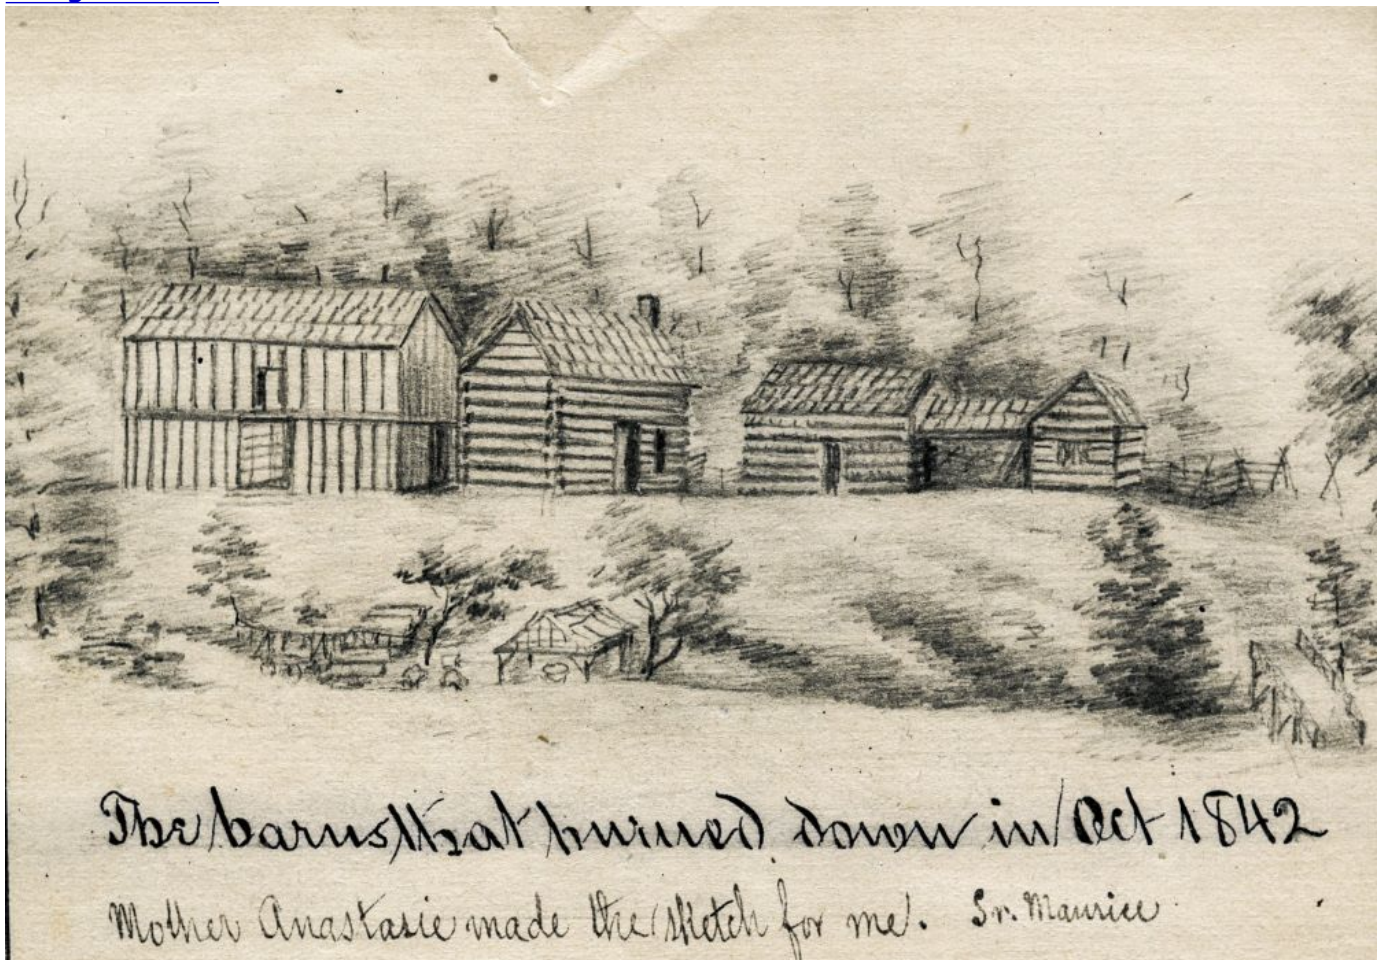 The barns that burned down in Oct 1842
Mother Anastasie made the sketch for me. Sr. Maurice